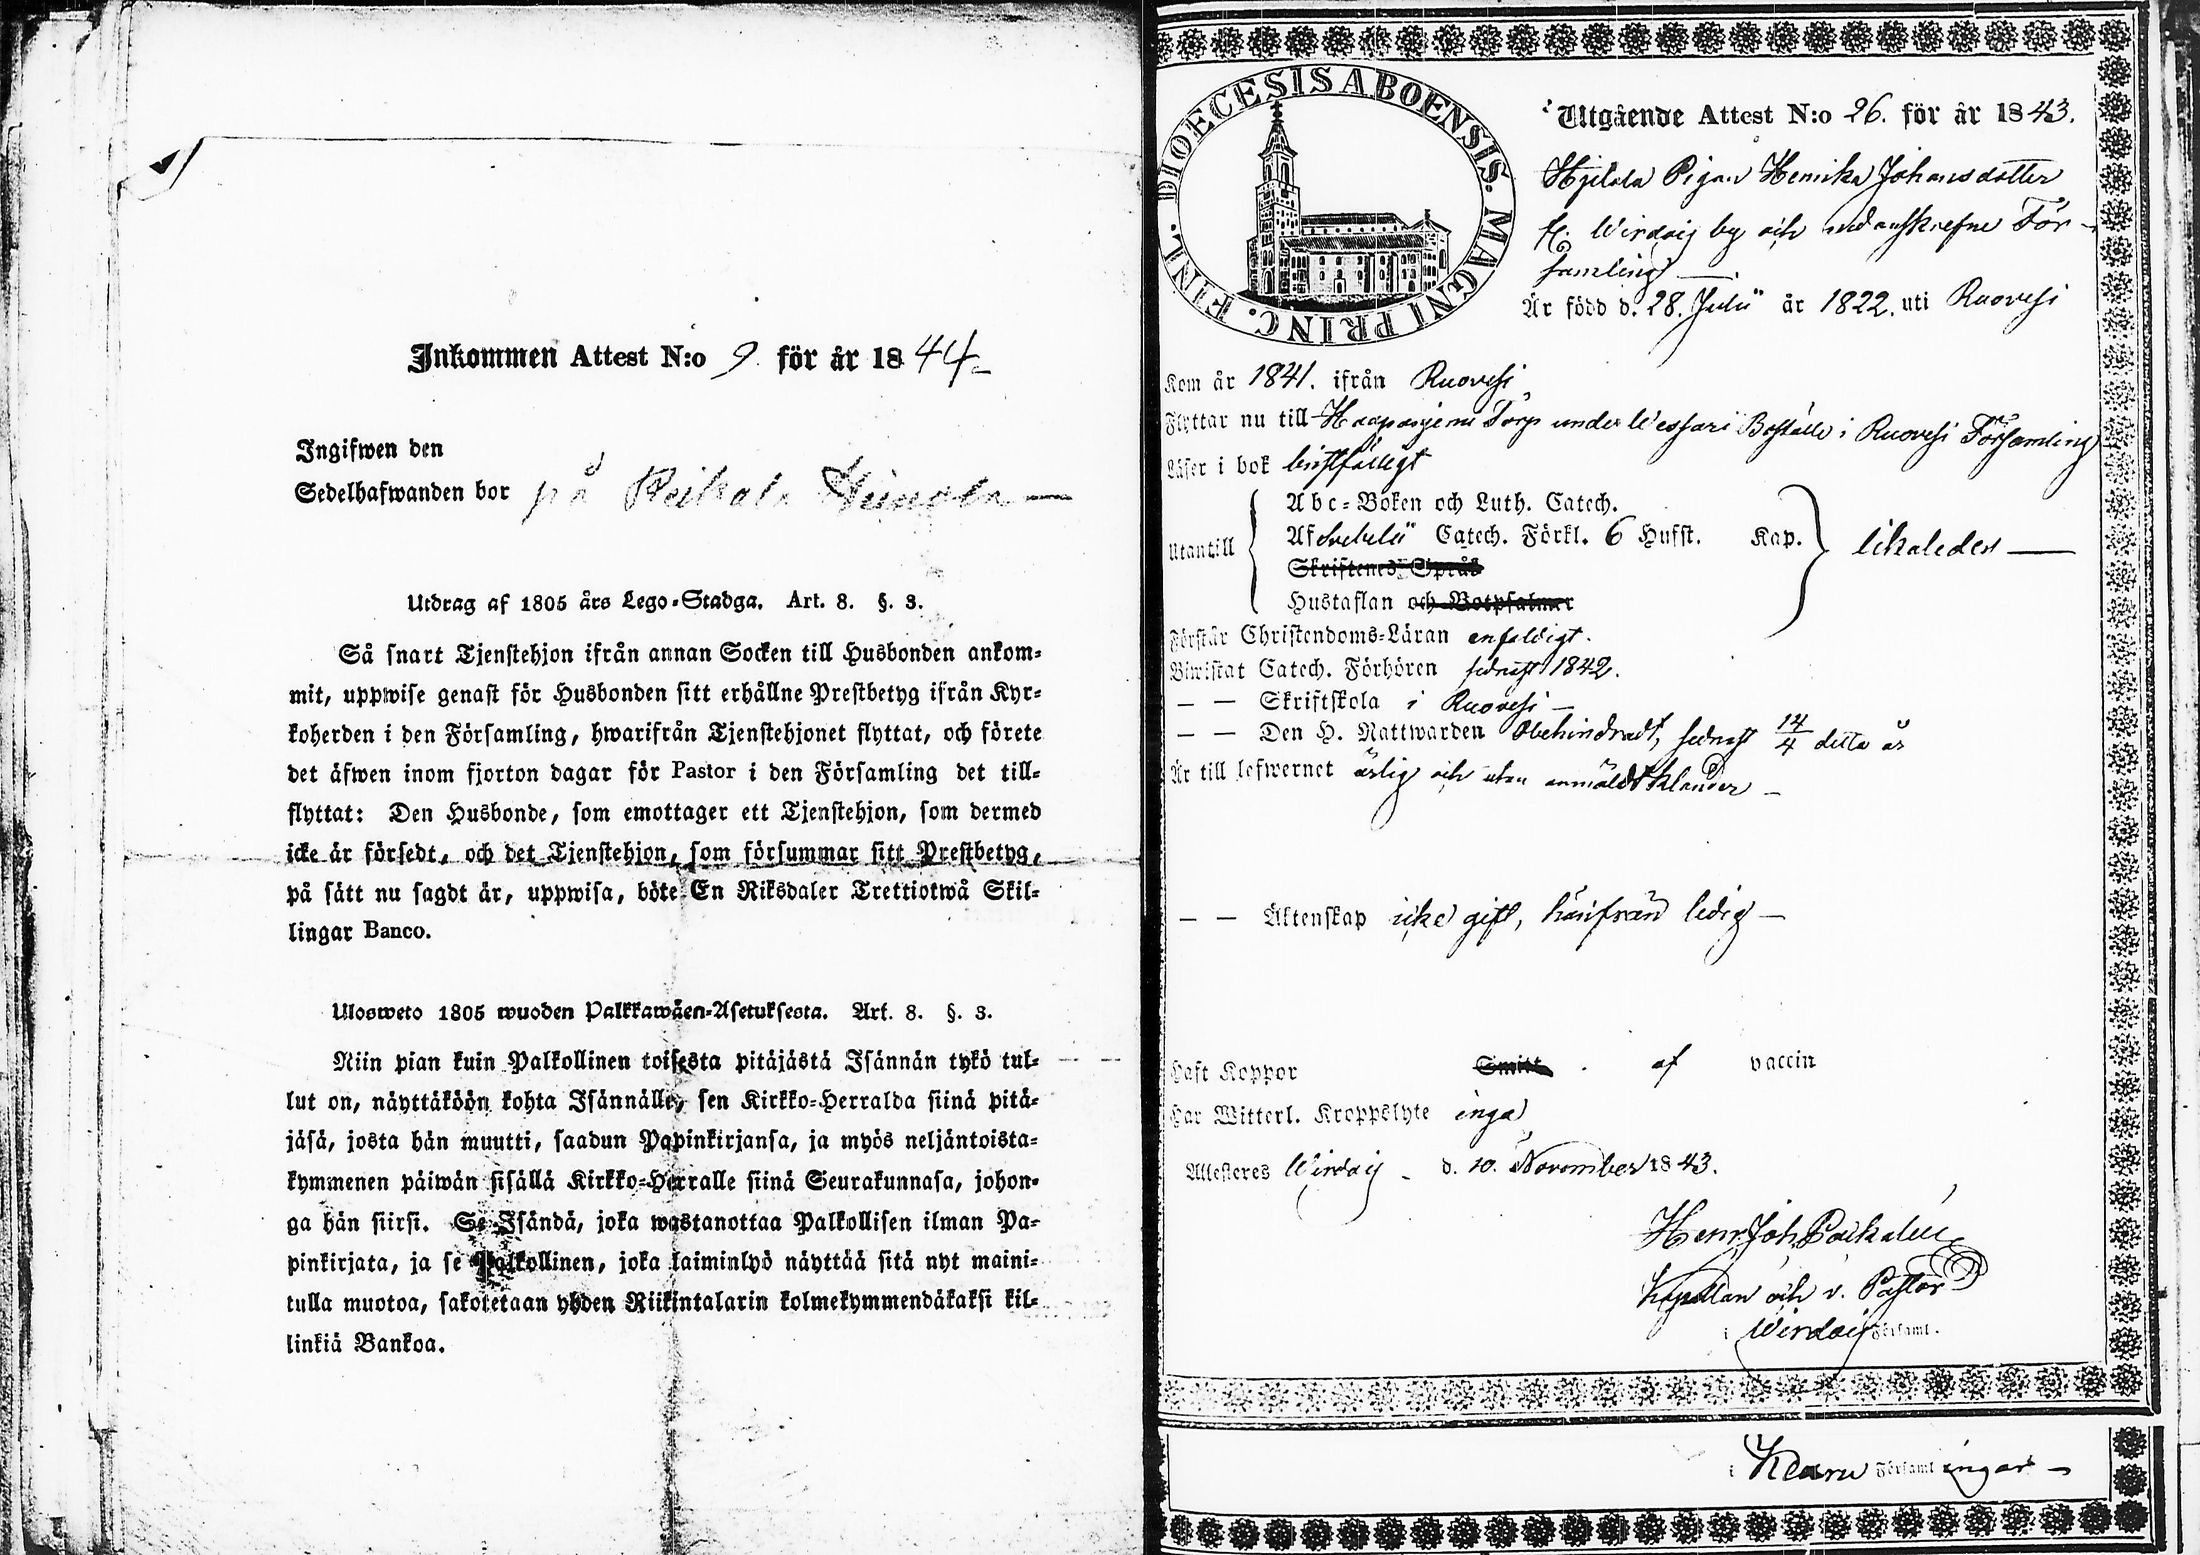 Inkommen Attest N:o 9. för år 1844
Ingifwen den
Sedelhafwanden bor på
Utdrag af 1805 års Lego-Stadga. Art. 8. §. 3.
Så snart Tjenstehjon ifrån annan Socken till Husbonden ankom-
mit, uppwise genast för Husbonden sitt erhållne Prestbetyg ifrån Kyr-
koherden i den Församling, hwarifrån Tjenstehjonet flyttat, och förete
det äfwen inom fjorton dagar för Pastor i den Församling det till-
flyttat: Den Husbonde, som emottager ett Tjenstehjon, som dermed
icke är försedt, och det Tjenstehjon, som försummar sitt Prestbetyg,
på sätt nu sagdt är, uppwisa, böte En Riksdaler Trettiotwå Skil-
lingar Banco.
Ulosweto 1805 wuoden Palkkawäen-Asetuksesta. Art. 8. §. 3.
Niin pian kuin Palkollinen toisesta pitäjästä Isännän tykö tul-
lut on, näyttäköön kohta Isännälle, sen Kirkko-Herralda siinä pitä-
jäsä, josta hän muutti, saadun Papinkirjansa, ja myös neljäntoista-
kymmenen päiwän sisällä Kirkko-Herralle siinä Seurakunnasa, johon-
ga hän siirsi. Se Isändä, joka wastanottaa Palkollisen ilman Pa-
pinkirjata, ja se Palkollinen, joka laiminlyö näyttää sitä nyt maini-
tulla muotoa, sakotetaan yhden Riikintalarin kolmekymmendäkaksi kil-
linkiä Bankoa.
DIOECESIS ABOENSIS. MAGNI PRINC. FINL.
Utgående Attest N:o 26. för år 1843.
Pigan Henrika Johansdotter
fr. Wirdois by och nedanskrefne För-
samling
Är född d. 28. Julii år 1822. uti Ruovesi
Kom år 1841. ifrån Ruovesi
Flyttar nu till Torp under Wessari Boställe i Ruovesi Församling
Läser i bok
Utantill
Abc-Boken och Luth. Catech.
Af Svebelii Catech. Förkl. 6 Hufst. Kap. likaledes
Skriftenes Språk
Hustaflan och Botpsalmer
Förstår Christendoms-Läran enfaldigt.
Biwistat Catech. Förhören sednast 1842.
— — Skriftskola i Ruovesi —
— — Den H. Nattwarden Obehindradt, sednast 14/4 detta år
Är till lefwernet ärlig och utan anmäldt klander —
— — Äktenskap icke gift, härifrån ledig —
Haft Koppor Smitt. af vaccin
Har Witterl. Kroppslyte inga
Attesteres Wirdois d. 10. November 1843.
Henr. Joh.
Kapellan och v. Pastor
i Wirdois Församl.
i Församlingar —